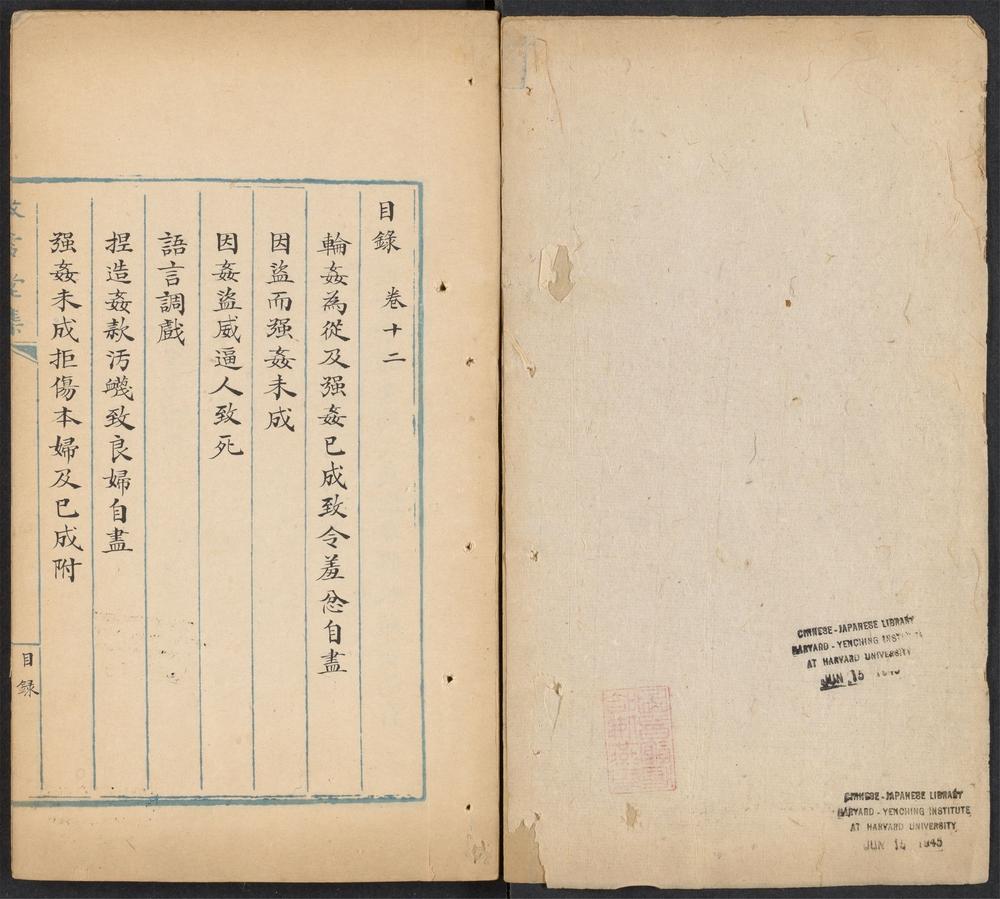 目錄 卷十二
輪姦為從及强姦已成致令羞忿自盡
因盜而强姦未成
因姦盜威逼人致死
語言調戲
捏造姦款汚衊致良婦自盡
强姦未成拒傷本婦及已成附
目録
CHINESE-JAPANESE LIBRARY
HARVARD-YENCHING INSTITUTE
AT HARVARD UNIVERSITY
JUN 15
CHINESE-JAPANESE LIBRARY
HARVARD-YENCHING INSTITUTE
AT HARVARD UNIVERSITY
JUN 15 1945